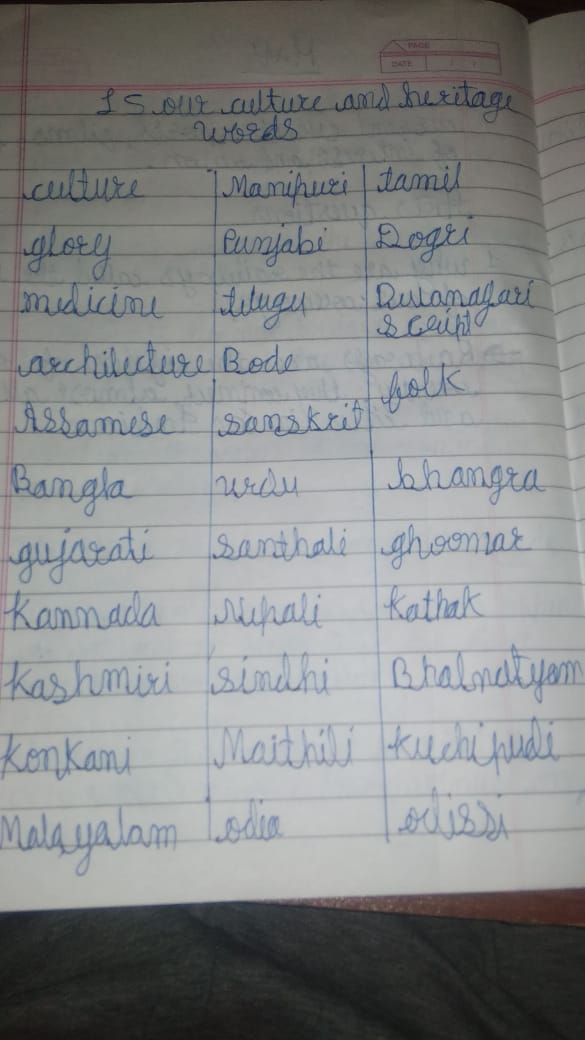 PAGE
DATE
15 our culture and heritage
words
culture Manipuri tamil
glory Punjabi Dogri
medicine telugu Devanagari
script
architecture Bodo
folk
Assamese sanskrit
Bangla urdu bhangra
gujarati santhali ghoomar
Kannada Nepali Kathak
Kashmiri sindhi Bhalnatyam
Konkani Maithili Kuchipudi
Malayalam odia odissi